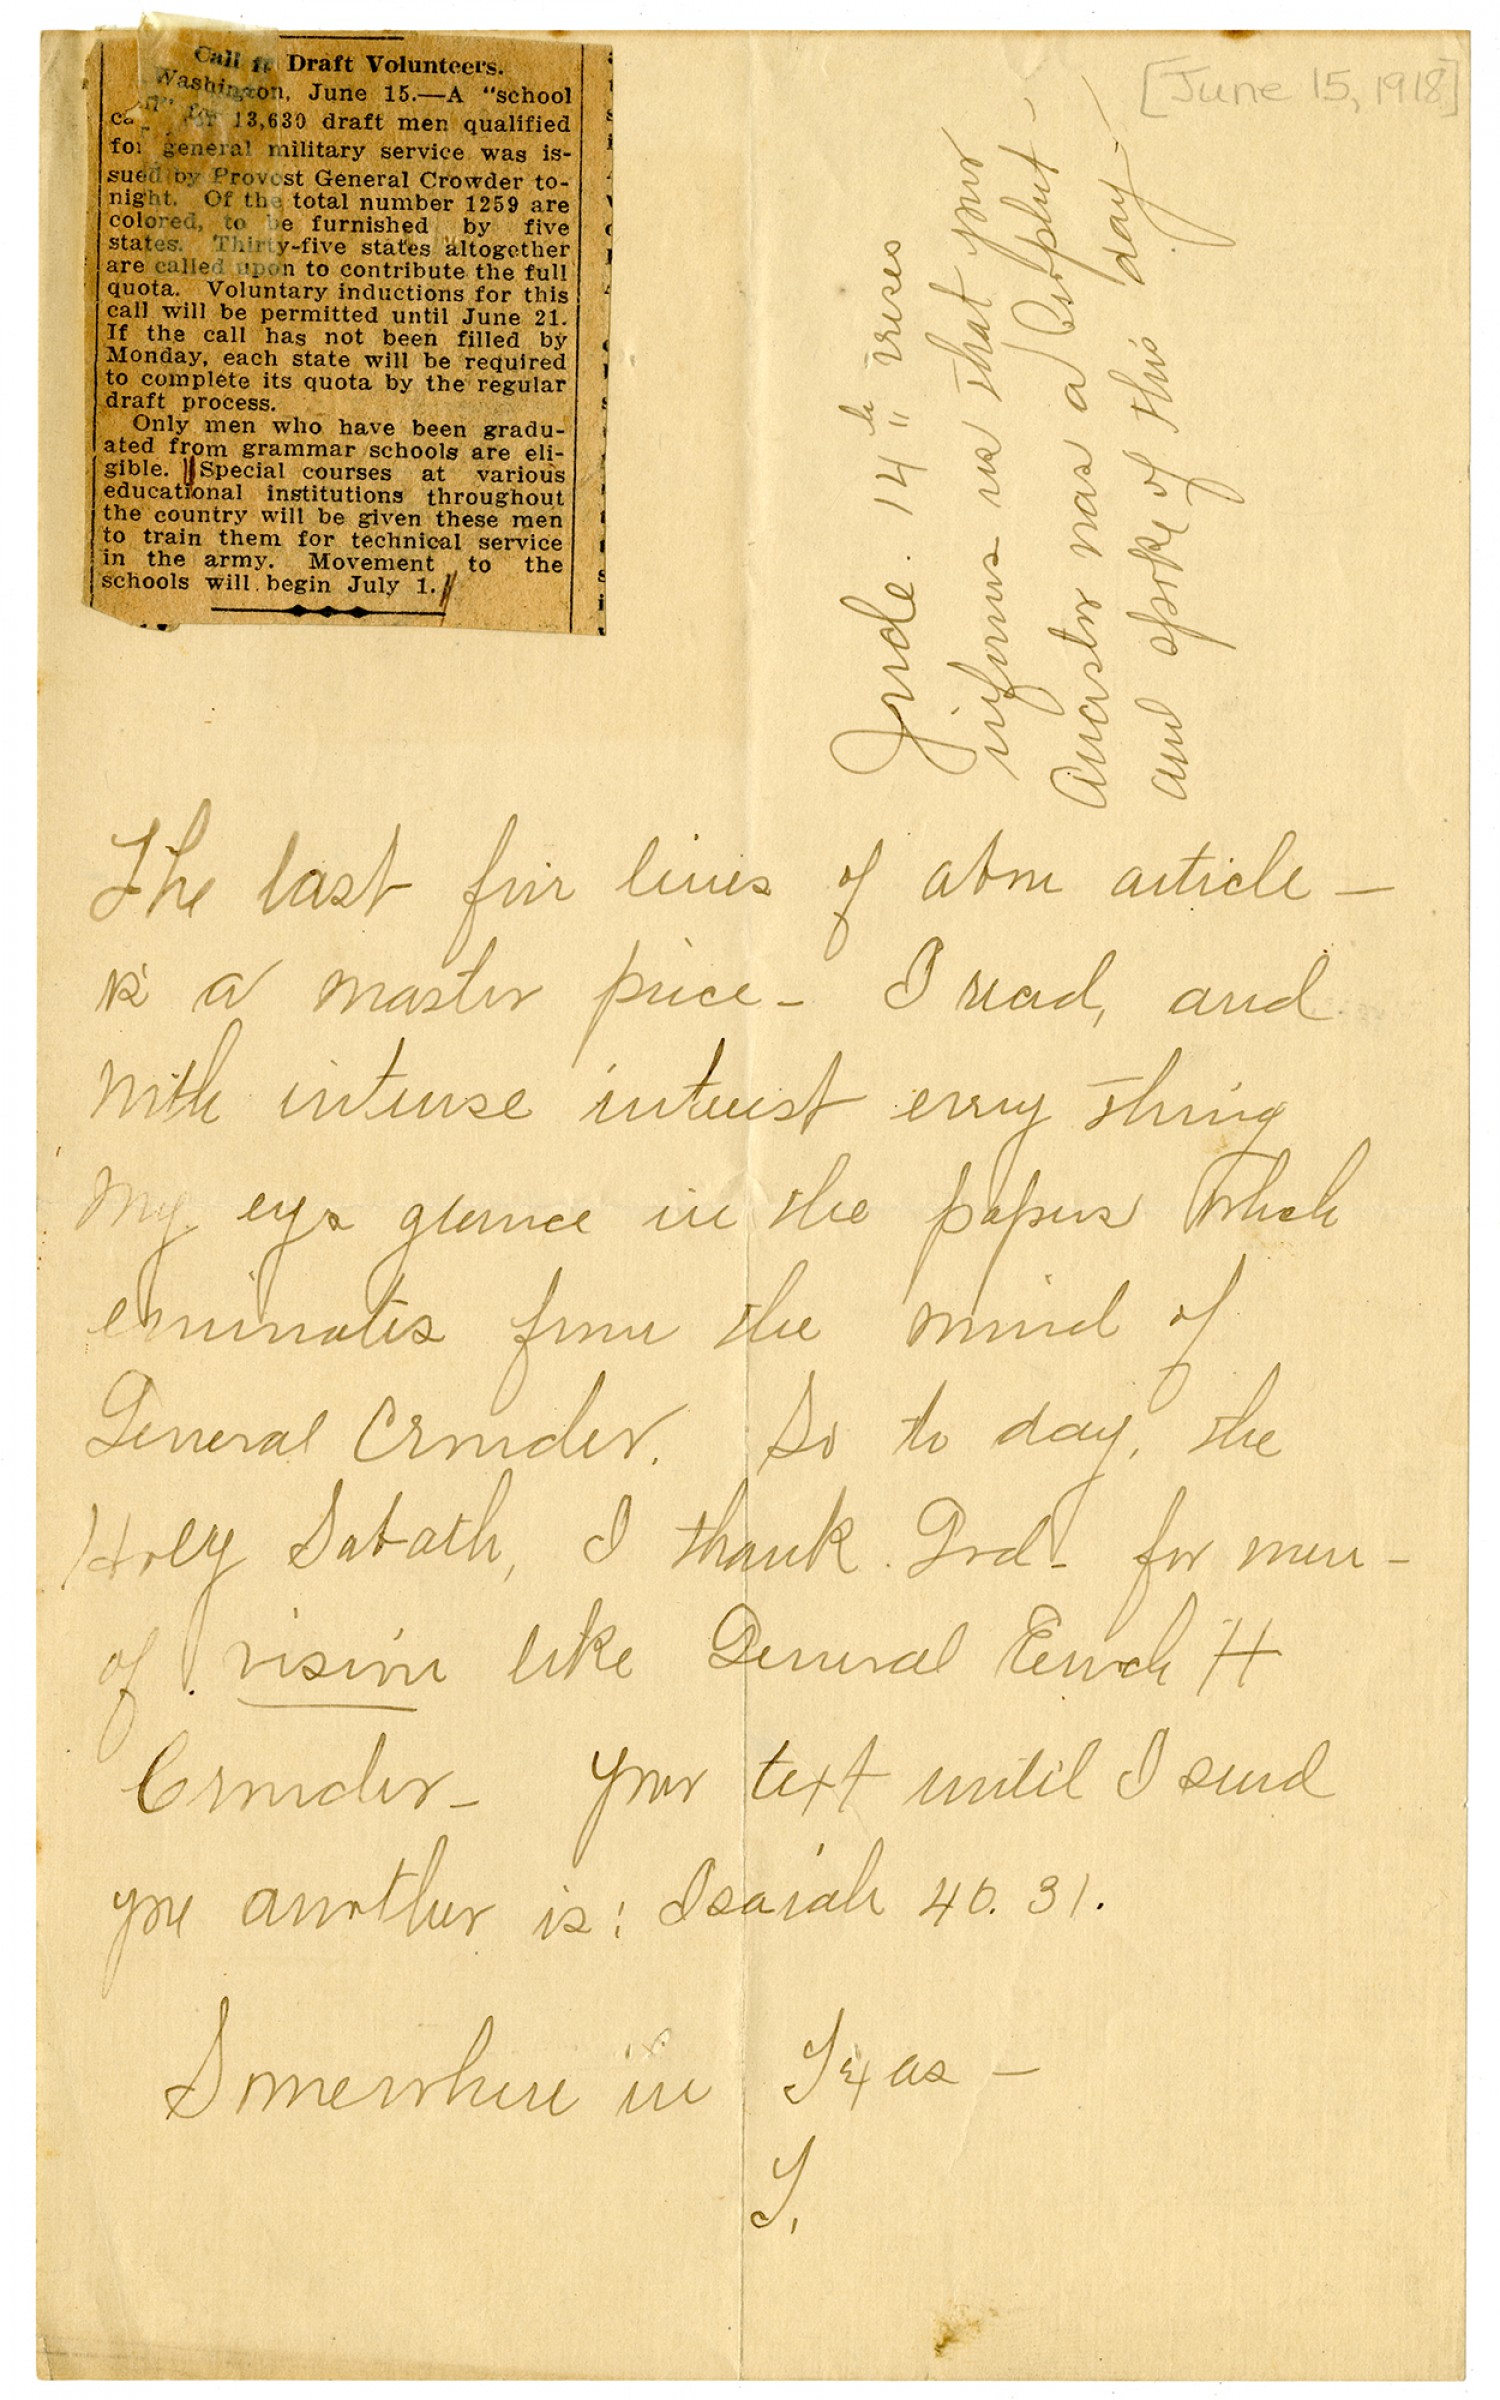 Call for Draft Volunteers.
Washington, June 15.—A "school
call" for 13,630 draft men qualified
for general military service was is-
sued by Provost General Crowder to-
night. Of the total number 1259 are
colored, to be furnished by five
states. Thirty-five states altogether
are called upon to contribute the full
quota. Voluntary inductions for this
call will be permitted until June 21.
If the call has not been filled by
Monday, each state will be required
to complete its quota by the regular
draft process.
Only men who have been gradu-
ated from grammar schools are eli-
gible. Special courses at various
educational institutions throughout
the country will be given these men
to train them for technical service
in the army. Movement to the
schools will begin July 1.
[June 15, 1918]
Jude. 14th verses
informs us that your
Ancestor was a Prophet—
and spoke of this day—
The last five lines of above article—
is a master piece— I read, and
with intense interest every thing
my eys glance in the papers which
eminates from the mind of
General Crowder. So to day, the
Holy Sabath, I thank God— for men—
of vision like General Enoch H
Crowder— Your text until I send
you another is: Isaiah 40. 31.
Somewhere in Texas—
T.